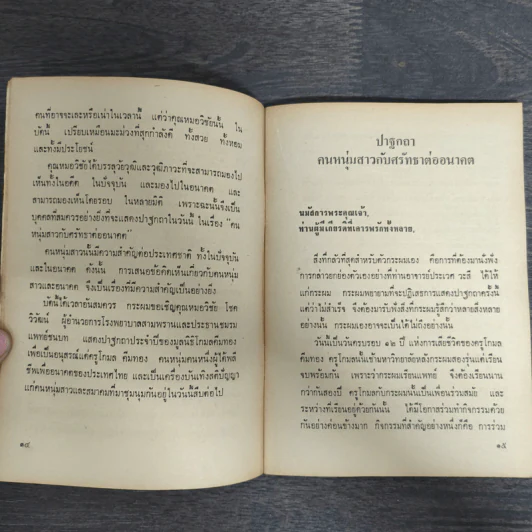 คนที่อาจจะเละหรือเน่าในเวลานี้ แต่ว่าคุณหมอวิชัยนั้น ใน
บัดนี้ เปรียบเหมือนมะม่วงที่สุกกำลังดี ทั้งสวย ทั้งหอม
และทั้งมีประโยชน์
คุณหมอวิชัยได้บรรลุวัยวุฒิและวุฒิภาวะที่จะสามารถมองไป
เห็นทั้งในอดีต ในปัจจุบัน และมองไปในอนาคต และ
สามารถมองเห็นโดยรอบ ในหลายมิติ เพราะฉะนั้นจึงเป็น
บุคคลที่สมควรอย่างยิ่งที่จะแสดงปาฐกถาในวันนี้ ในเรื่อง "คน
หนุ่มสาวกับศรัทธาต่ออนาคต"
คนหนุ่มสาวนั้นมีความสำคัญต่อประเทศชาติ ทั้งในปัจจุบัน
และในอนาคต ดังนั้น การเสนอข้อคิดเห็นเกี่ยวกับคนหนุ่ม
สาวและอนาคต จึงเป็นเรื่องที่มีความสำคัญเป็นอย่างยิ่ง
บัดนี้ได้เวลาอันสมควร กระผมขอเชิญคุณหมอวิชัย โชค
วิวัฒน ผู้อำนวยการโรงพยาบาลสามพรานและประธานชมรม
แพทย์ชนบท แสดงปาฐกถาประจำปีของมูลนิธิโกมลคีมทอง
เพื่อเป็นอนุสรณ์แด่ครูโกมล คีมทอง คนหนุ่มคนหนึ่งผู้ได้พลี
ชีพเพื่ออนาคตของประเทศไทย และเป็นเครื่องบันเทิงสติปัญญา
แก่คนหนุ่มสาวและสมาคมที่มาชุมนุมกันอยู่ในวันนี้สืบต่อไป
๑๔
ปาฐกถา
คนหนุ่มสาวกับศรัทธาต่ออนาคต
นมัสการพระคุณเจ้า,
ท่านผู้มีเกียรติที่เคารพรักทั้งหลาย,
สิ่งที่กลัวที่สุดสำหรับตัวกระผมเอง คือการที่ต้องมานั่งฟัง
การกล่าวยกย่องตัวเองอย่างที่ท่านอาจารย์ประเวศ วะสี ได้ให้
แก่กระผม กระผมพยายามที่จะปฏิเสธการแสดงปาฐกถาครั้งนี้
แต่ว่าไม่สำเร็จ จึงต้องมารับฟังสิ่งที่กระผมรู้สึกว่าหลายสิ่งหลาย
อย่างนั้น กระผมเองอาจจะเป็นได้ไม่ถึงอย่างนั้น
วันนี้เป็นวันครบรอบ ๑๒ ปี แห่งการเสียชีวิตของครูโกมล
คีมทอง ครูโกมลนั้นเข้ามหาวิทยาลัยหลังกระผมสองรุ่นแต่เรียน
จบพร้อมกัน เพราะว่ากระผมเรียนแพทย์ จึงต้องเรียนนาน
กว่ากันสองปี ครูโกมลกับกระผมนั้นเป็นเพื่อนร่วมสมัย และ
ระหว่างที่เรียนอยู่ด้วยกันนั้น ได้มีโอกาสร่วมทำกิจกรรมด้วย
กันอย่างค่อนข้างมาก กิจกรรมที่สำคัญอย่างหนึ่งก็คือ การร่วม
๑๕